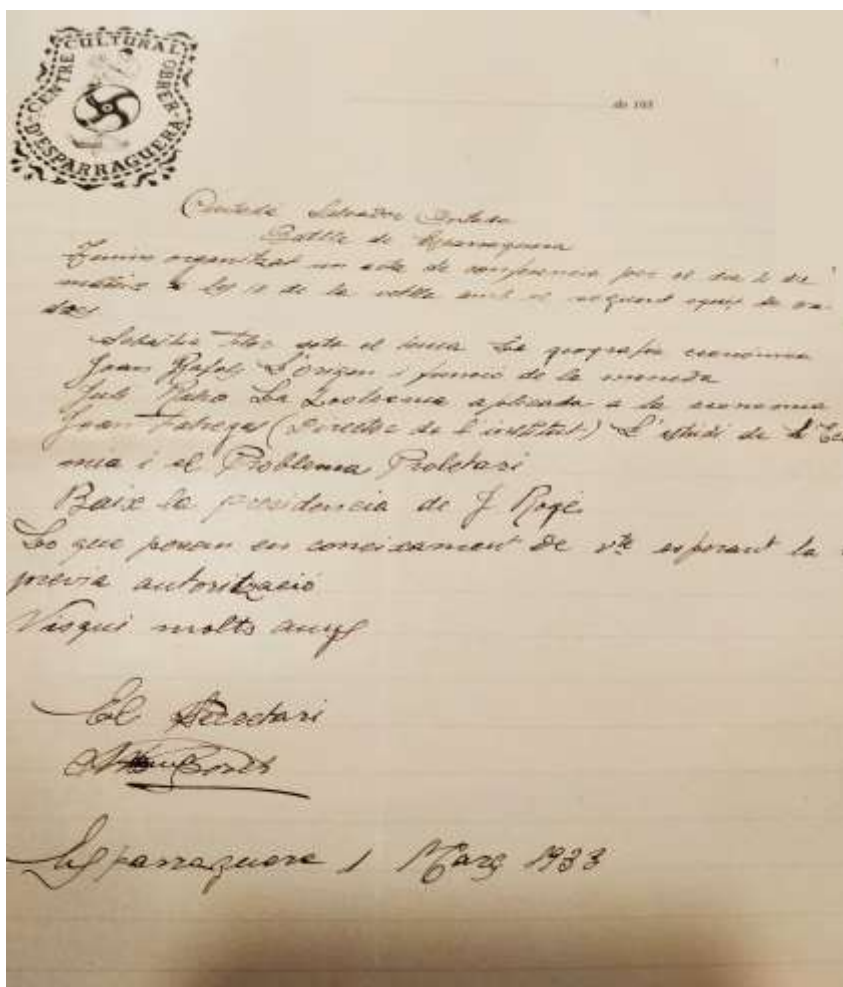 CENTRE CULTURAL OBRER D'ESPARRAGUERA
de 193
Ciutadà Salvador
Batlle de Esparraguera
Tenim organitzat un acte de conferencia per el dia 2 de
a les 10 de la vetlla amb el seguent equip de
sota el tema La geografia economica
Joan Rafols L'origen i funció de la moneda
Juli La aplicada a la economia
Joan Fabregas (Director de l'institut) L'estudi de
mia i el Problema Proletari
Baix la presidencia de J Rogé
Lo que posem en coneixament de vte esperant la
previa autorització
Visqui molts anys
El Secretari
Esparraguera 1 Març 1933